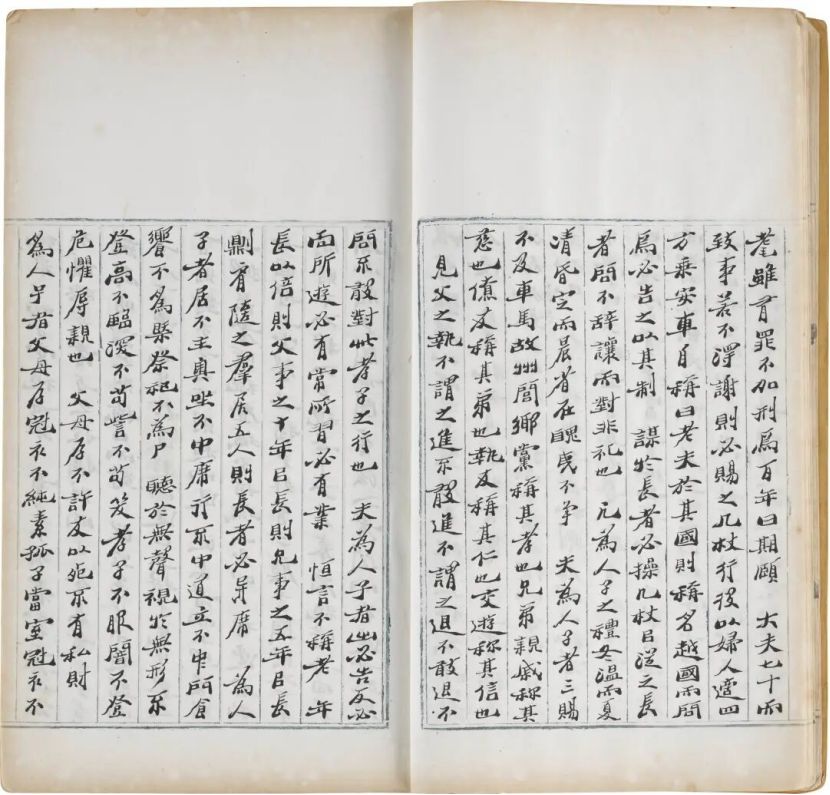 耄雖有罪不加刑焉百年曰期頤 大夫七十而
致事若不得謝則必賜之几杖行役以婦人適四
方乘安車自稱曰老夫於其國則稱名越國而問
焉必告之以其制 謀於長者必操几杖以從之長
者問不辭讓而對非礼也 凡為人子之禮冬溫而夏
凊昏定而晨省在醜夷不爭 夫為人子者三賜
不及車馬故州閭鄉黨稱其孝也兄弟親戚稱其
慈也僚友稱其弟也執友稱其仁也交遊稱其信也
見父之執不謂之進不敢進不謂之退不敢退不
問不敢對此孝子之行也 夫為人子者出必告反必
面所遊必有常所習必有業 恒言不稱老 年
長以倍則父事之十年以長則兄事之五年以長
則肩隨之羣居五人則長者必異席 為人
子者居不主奧坐不中席行不中道立不中門食
饗不為槩祭祀不為尸 聽於無聲視於無形 不
登高不臨深不苟訾不苟笑孝子不服闇不登
危懼辱親也 父母存不許友以死不有私財
為人子者父母存冠衣不純素孤子當室冠衣不